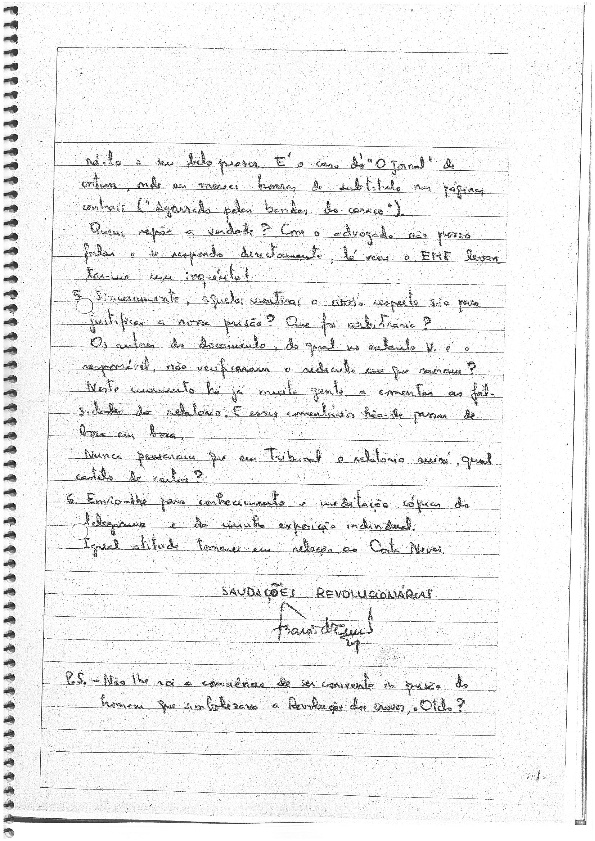 a seu belo prazer. É o caso d'"O Jornal" de
ontem, onde eu mereci honras de subtítulo nas páginas
centrais ("Agarrado pelas bandas do casaco").
Quem repõe a verdade? Com o advogado não posso
falar e se respondo directamente, lá vem o EME levan
tar-me um inquérito!
5. Sinceramente, aquelas mentiras a nosso respeito são para
justificar a nossa prisão? Que foi arbitrária?
Os autores do documento, do qual no entanto V. é o
responsável, não verificaram o ridículo em que caíram?
Neste momento há já muita gente a comentar as fal-
sidades do relatório. E esses comentários hão-de passar de
boca em boca.
Nunca pensaram que em Tribunal o relatório cairá, qual
castelo de cartas?
6. Envio-lhe para conhecimento e meditação cópias do
telegrama e da minha exposição individual.
Igual atitude tomarei em relação ao Costa Neves.
SAUDAÇÕES REVOLUCIONÁRIAS
P.S. - Não lhe rói a consciência de ser conivente na prisão do
homem que simbolizava a Revolução dos cravos, o Otelo?